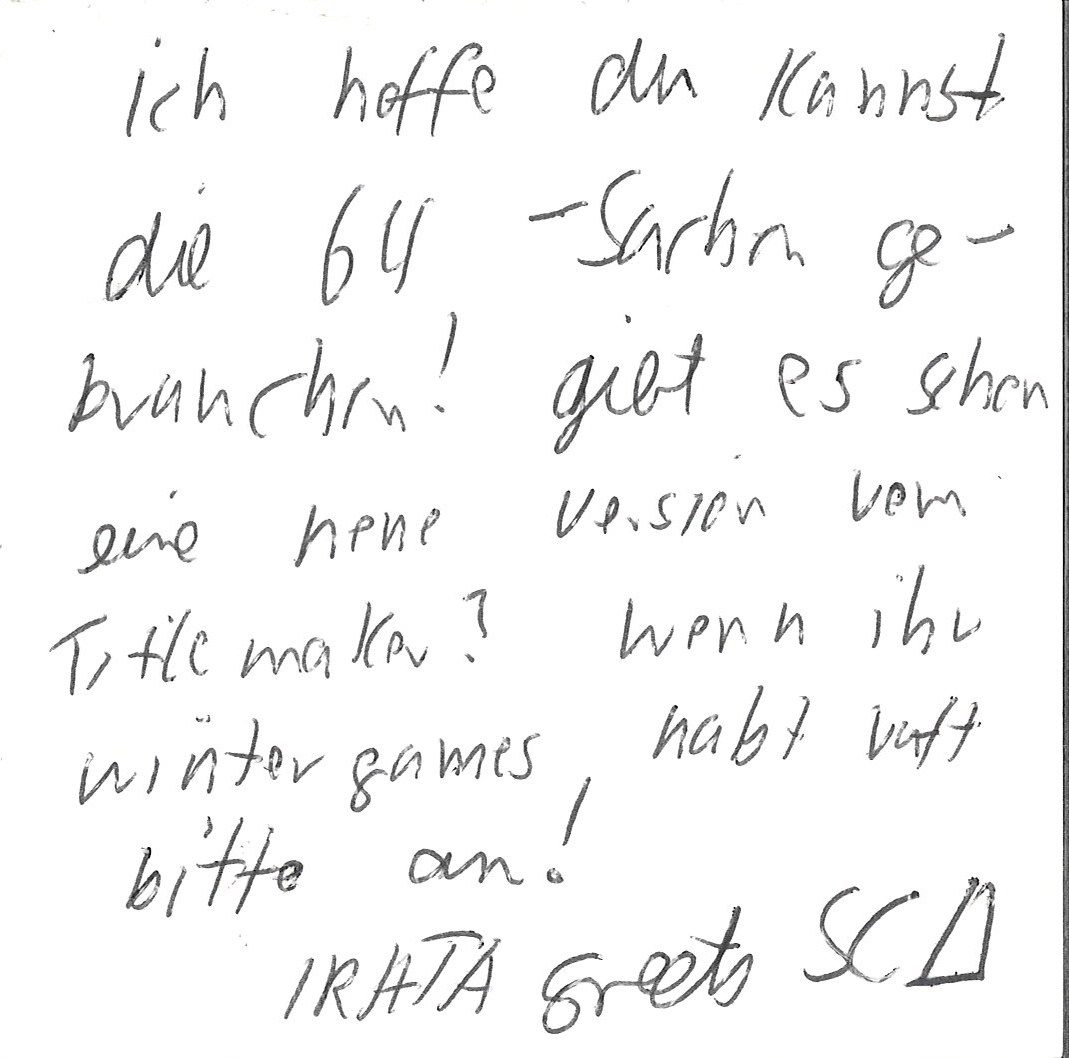 ich hoffe du kannst
die 64 -Sachen ge-
brauchen! giebt es schon
eine neue version vom
Titlemaker? wenn ihr
wintergames, habt ruft
bitte an!
IRATA Greets SCA